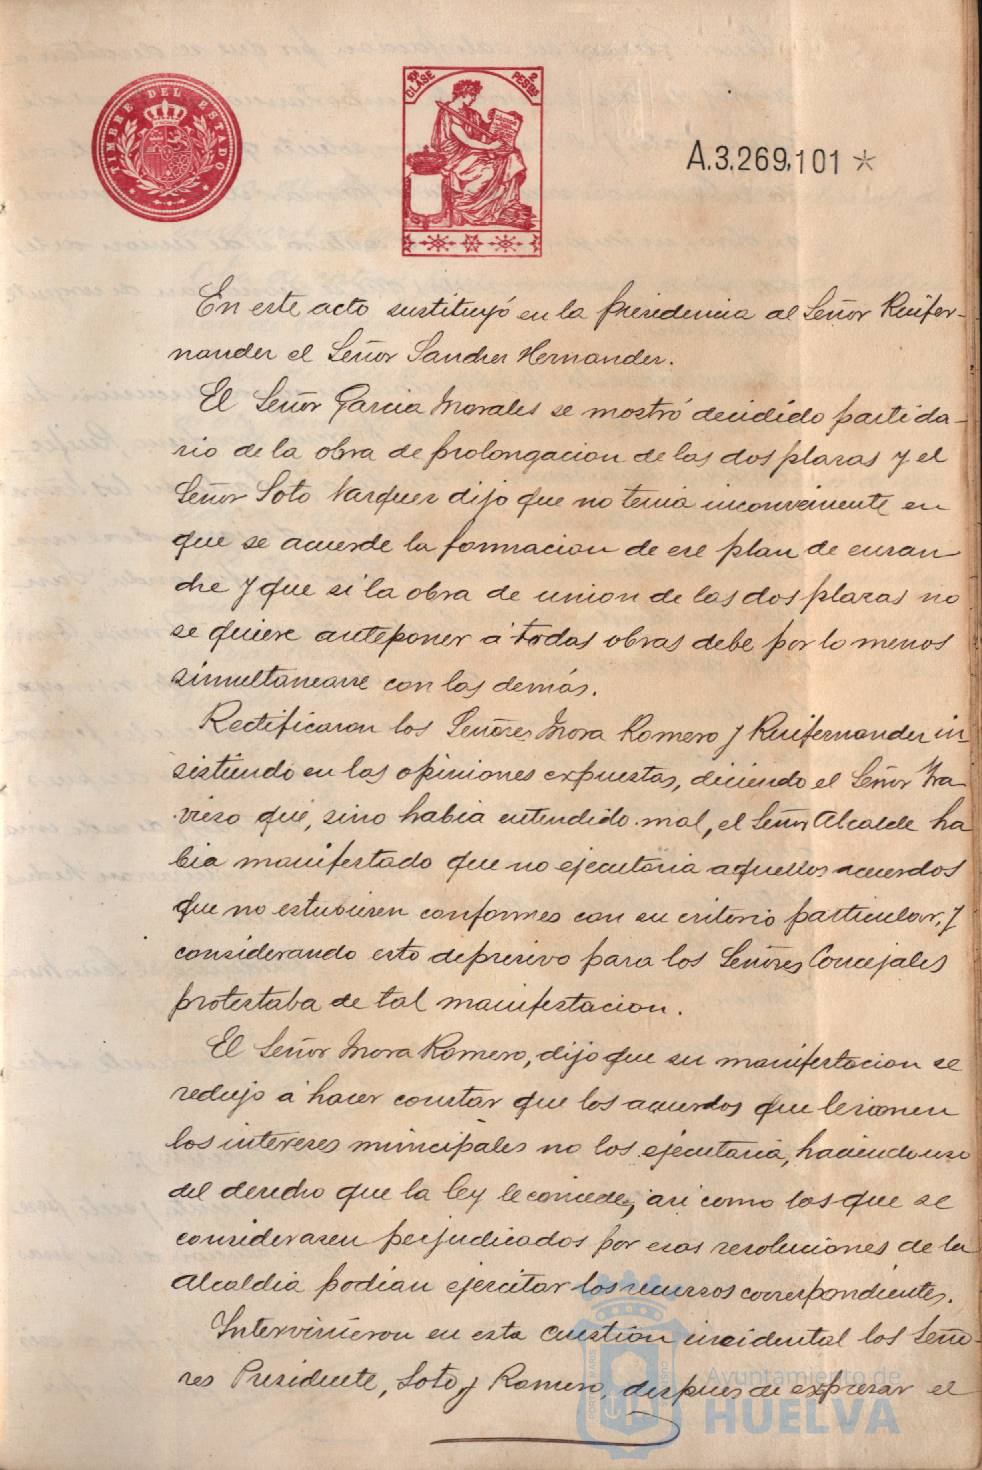 TIMBRE DEL ESTADO
10ª CLASE 2 PESETAS
A.3.269,101 *
En este acto sustituyó en la presidencia al Señor Ruifer-
nandez el Señor Sanchez Hernandez.
El Señor Garcia Morales se mostró decidido partida-
rio de la obra de prolongacion de las dos plazas y el
Señor Soto Vazquez dijo que no tenia inconveniente en
que se acuerde la formacion de ese plan de ensan-
che y que si la obra de union de las dos plazas no
se quiere anteponer á todas obras debe por lo menos
simultanearse con las demás.
Rectificaron los Señores Mora Romero y Ruifernandez in-
sistiendo en las opiniones expuestas, diciendo el Señor Tra-
vieso que, sino habia entendido mal, el Señor Alcalde ha
bia manifestado que no ejecutaria aquellos acuerdos
que no estuviesen conformes con su criterio particular, y
considerando esto depresivo para los Señores Concejales
protestaba de tal manifestacion.
El Señor Mora Romero, dijo que su manifestacion se
redujo á hacer constar que los acuerdos que lesionen
los intereses municipales no los ejecutaria, haciendo uso
del derecho que la ley le concede, asi como los que se
considerasen perjudicados por esas resoluciones de la
Alcaldia podian ejercitar los recursos correspondientes.
Intervinieron en esta cuestion incidental los Seño-
res Presidente, Soto y Romero, despues de expresar el
Ayuntamiento de
HUELVA